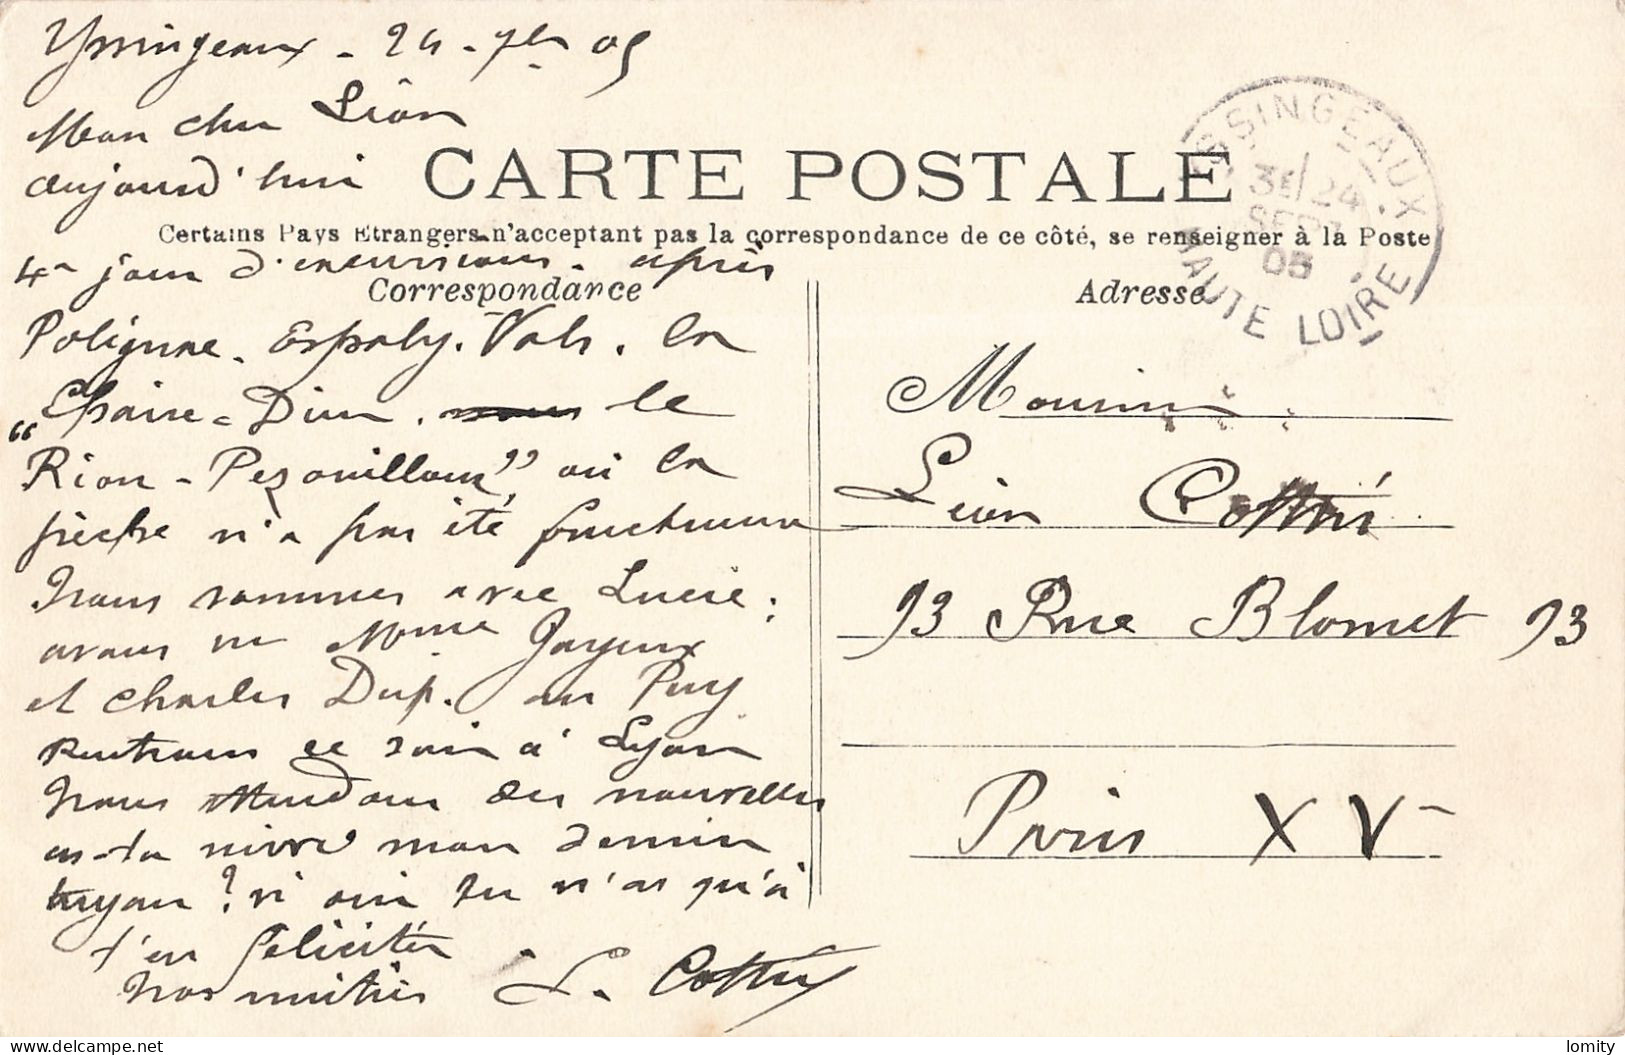 Yssingeaux - 24 - 7bre 05
Mon cher Léon
aujourd'hui
CARTE POSTALE
Certains Pays Etrangers n'acceptant pas la correspondance de ce côté, se renseigner à la Poste
4e jour d'excursions. après
Correspondance
Polignac. Espaly. Vals. la
"Chaise-Dieu. le
Riou-Pezouillou" où la
pêche n'a pas été fructueuse
Nous sommes avec Lucie;
avons vu Mme Joyeux
et Charles Dup. au Puy
Rentrons ce soir à Lyon
Nous des nouvelles
as-tu suivi mon dernier
tuyau? si oui tu n'as qu'à
t'en féliciter
Nos amitiés L. Cottin
YSSINGEAUX
3E/24
SEPT
05
HAUTE LOIRE
Adresse
Monsieur
Léon Cottin
93 Rue Blomet 93
Paris XV
delcampe.net
lomity